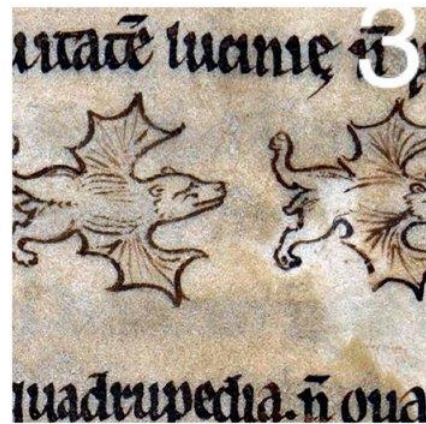 3
uitatē lucinię n̄
quadrupedia. n̄ oua